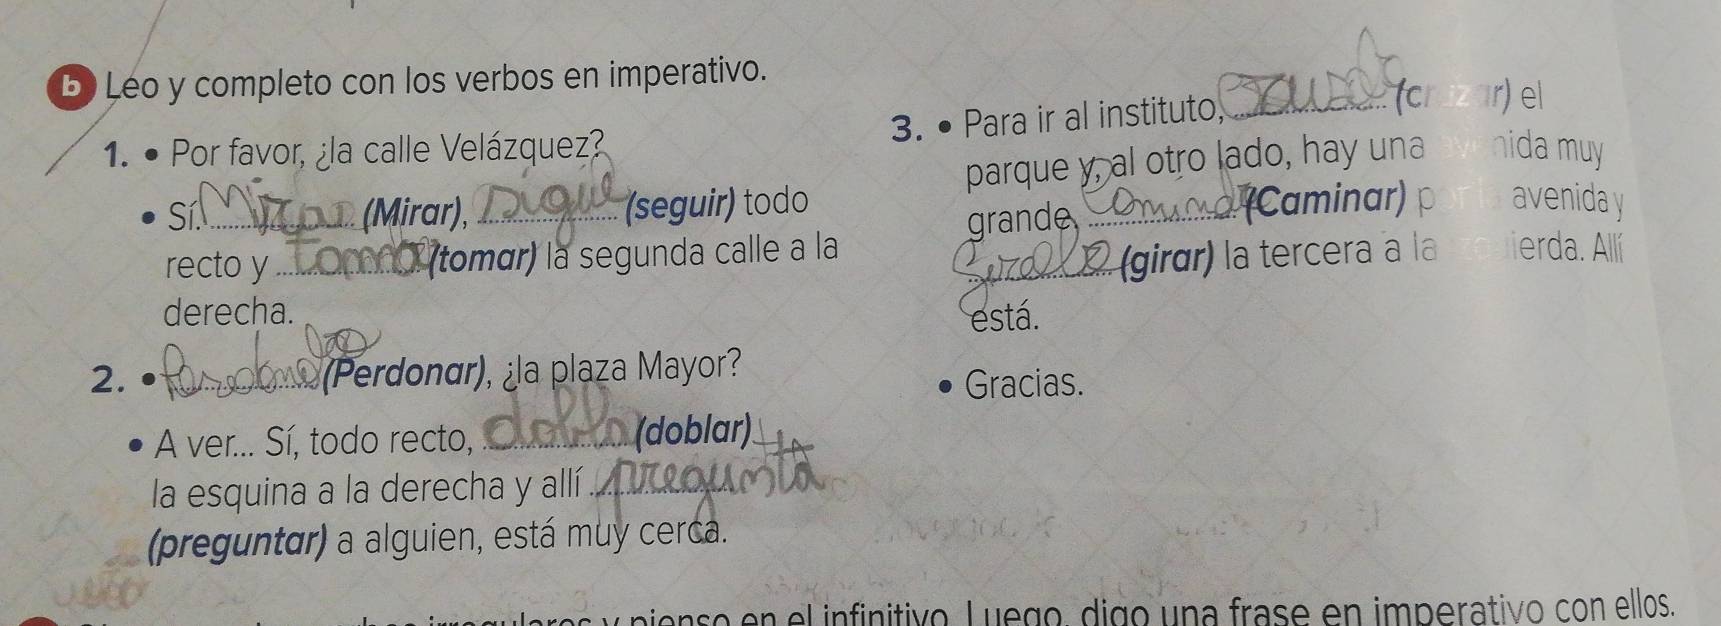 b Leo y completo con los verbos en imperativo.
1. • Por favor, ¿la calle Velázquez?
• Sí. (Mirar), sigue (seguir) todo
recto y toma (tomar) la segunda calle a la
derecha.
2. • (Perdonar), ¿la plaza Mayor?
• A ver... Sí, todo recto, dobla (doblar)
la esquina a la derecha y allí pregunta
(preguntar) a alguien, está muy cerca.
3. • Para ir al instituto, (cruzar) el
parque y, al otro lado, hay una avenida muy
grande, (Caminar) por la avenida y
(girar) la tercera a la izquierda. Allí
está.
• Gracias.
y pienso en el infinitivo. Luego, digo una frase en imperativo con ellos.